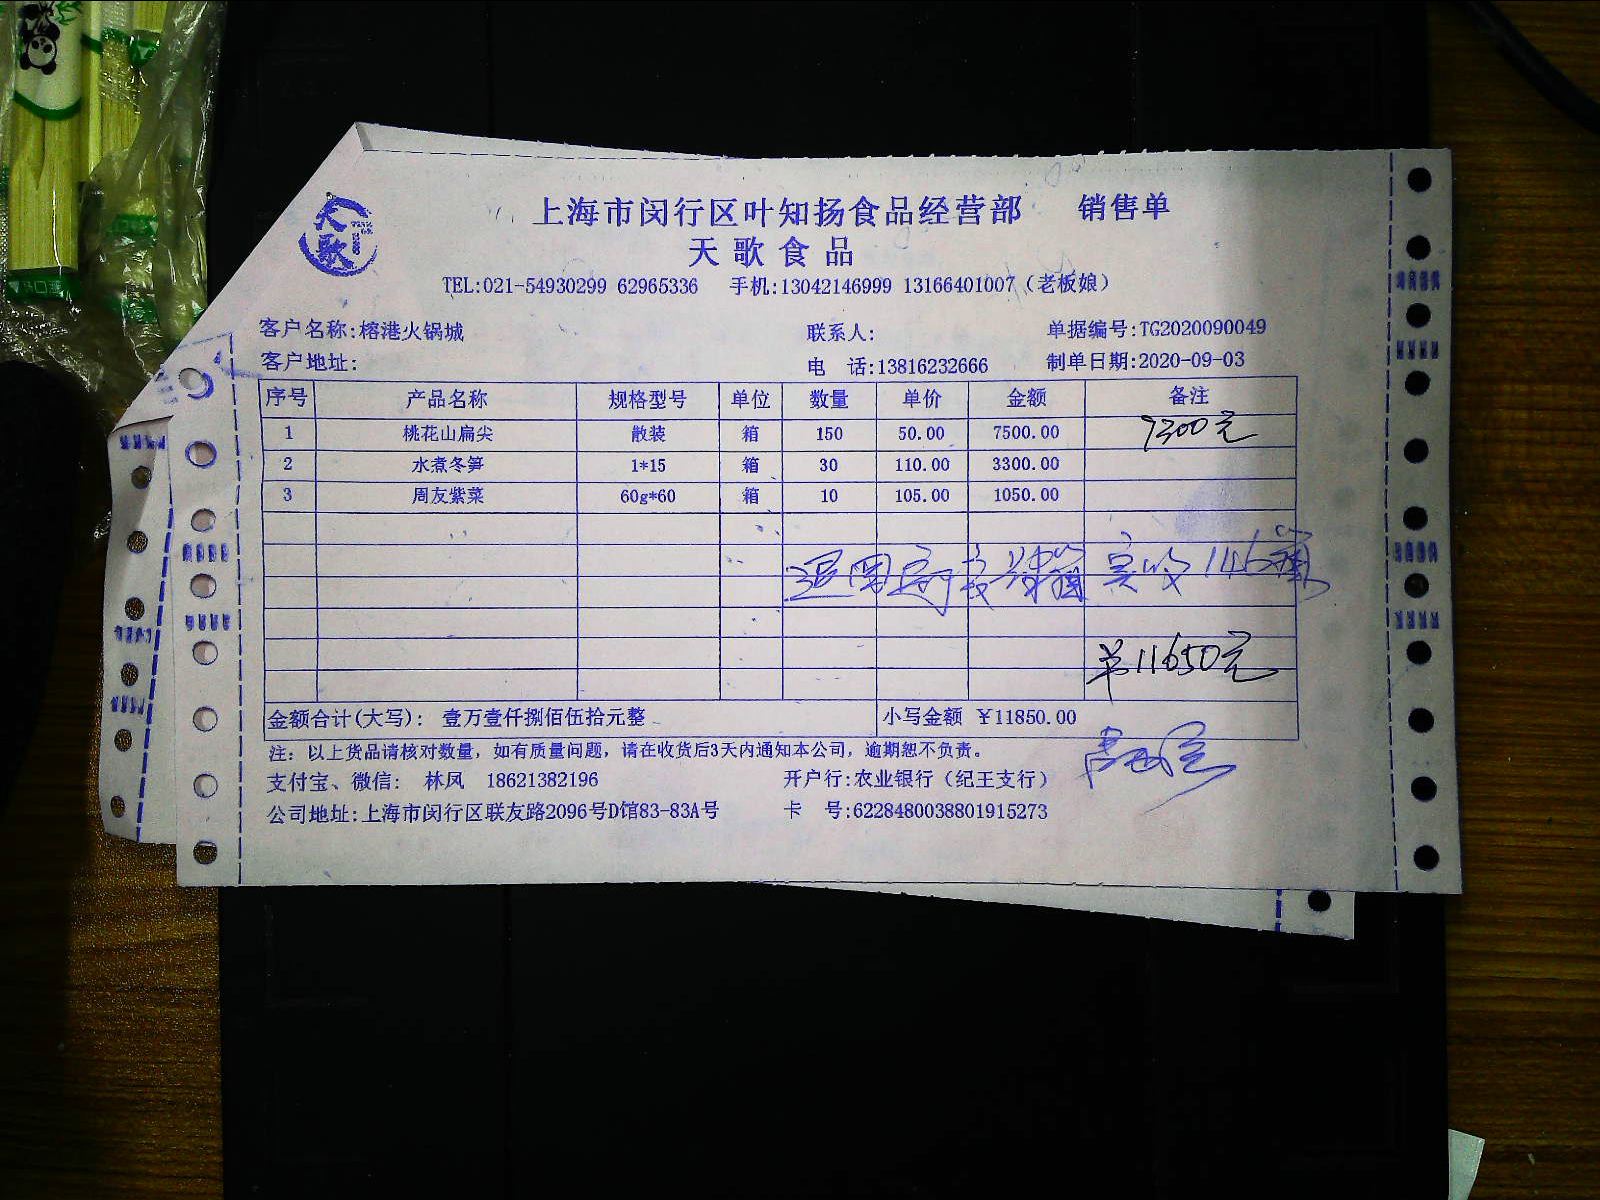 天歌
上海市闵行区叶知扬食品经营部 销售单
天歌食品
TEL:021-54930299 62965336 手机:13042146999 13166401007（老板娘）
客户名称:榕港火锅城 联系人: 单据编号:TG2020090049
客户地址: 电 话:13816232666 制单日期:2020-09-03
序号 产品名称 规格型号 单位 数量 单价 金额 备注
1 桃花山扁尖 散装 箱 150 50.00 7500.00 7300元
2 水煮冬笋 1*15 箱 30 110.00 3300.00
3 周友紫菜 60g*60 箱 10 105.00 1050.00
退 实收146箱
¥11650元
金额合计(大写): 壹万壹仟捌佰伍拾元整 小写金额 ¥11850.00
注: 以上货品请核对数量, 如有质量问题, 请在收货后3天内通知本公司, 逾期恕不负责。
支付宝、微信: 林凤 18621382196 开户行:农业银行（纪王支行）
公司地址:上海市闵行区联友路2096号D馆83-83A号 卡 号:6228480038801915273